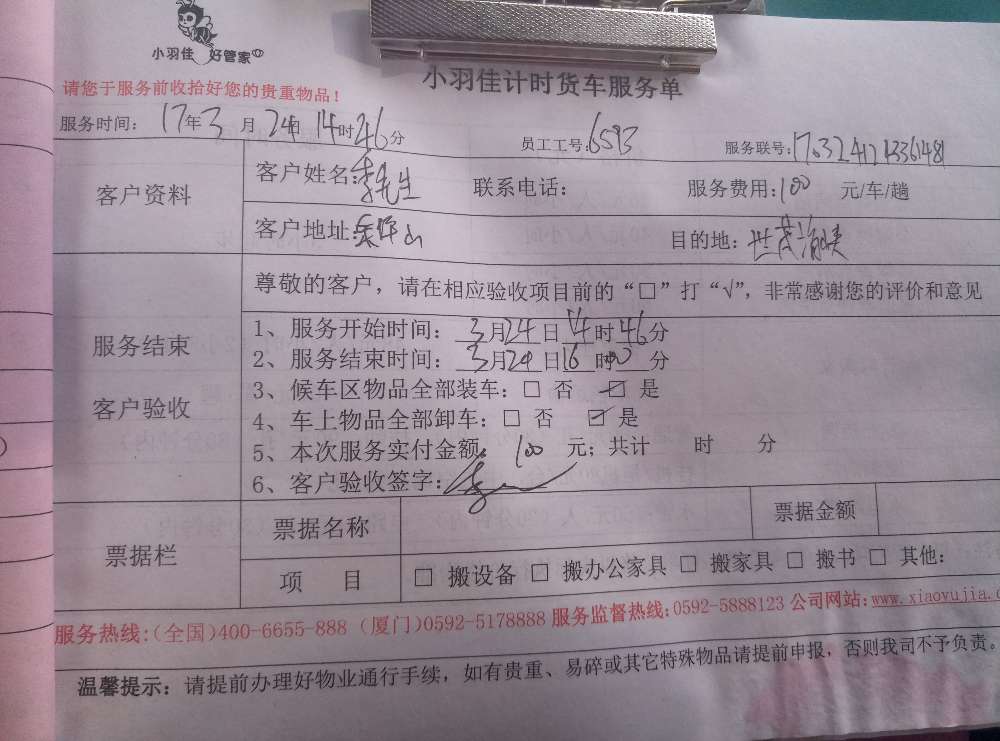 小羽佳 好管家
小羽佳计时货车服务单
请您于服务前收拾好您的贵重物品！
服务时间： 17年3月24日14时46分 员工工号：6593 服务联号：
客户资料
客户姓名：李先生 联系电话： 服务费用：100 元/车/趟
客户地址： 目的地：世茂
服务结束
客户验收
尊敬的客户，请在相应验收项目前的“□”打“√”，非常感谢您的评价和意见
1、服务开始时间：3月24日14时46分
2、服务结束时间：3月24日16时00分
3、候车区物品全部装车：□ 否 ☑ 是
4、车上物品全部卸车：□ 否 ☑ 是
5、本次服务实付金额：100 元；共计 时 分
6、客户验收签字：
票据栏
票据名称 票据金额
项 目 □ 搬设备 □ 搬办公家具 □ 搬家具 □ 搬书 □ 其他：
服务热线：(全国)400-6655-888 (厦门)0592-5178888 服务监督热线：0592-5888123 公司网站：www.xiaoyujia.c
温馨提示：请提前办理好物业通行手续，如有贵重、易碎或其它特殊物品请提前申报，否则我司不予负责。